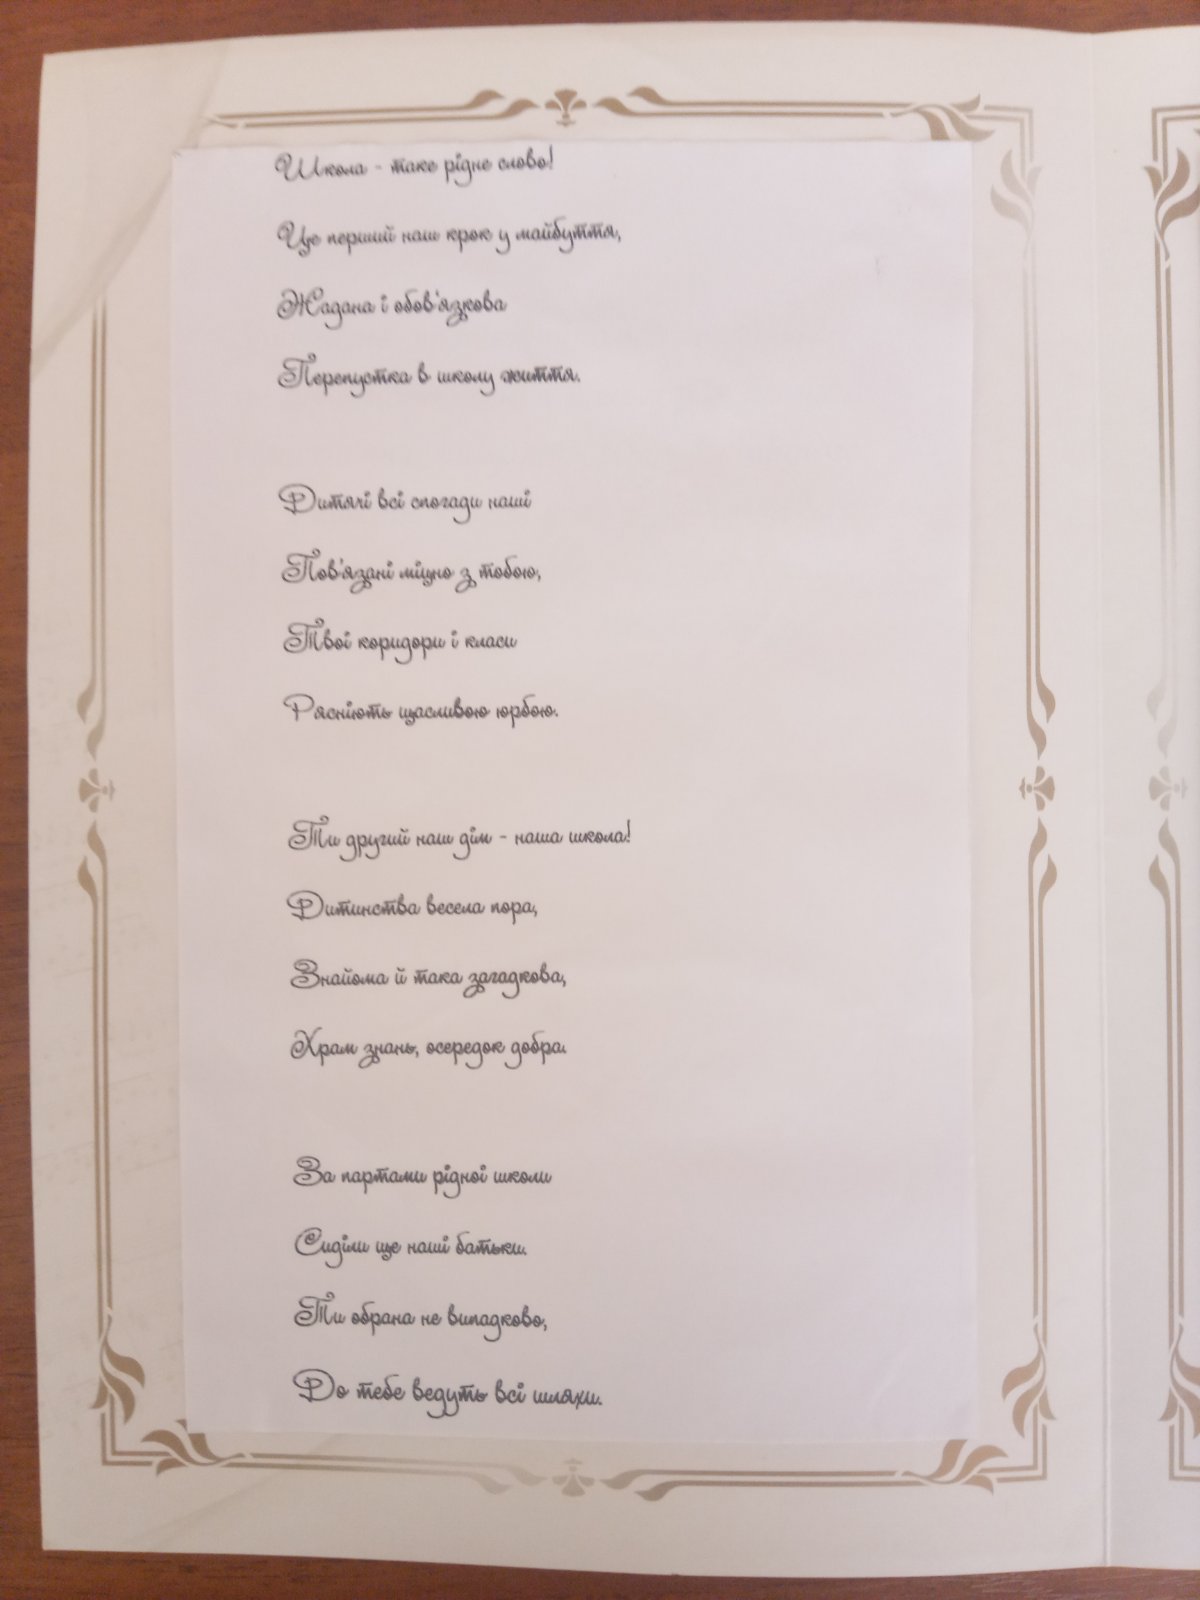 Школа - таке рідне слово!
Це перший наш крок у майбуття,
Жадана і обов'язкова
Перепустка в школу життя.
Дитячі всі спогади наші
Пов'язані міцно з тобою,
Твої коридори і класи
Рясніють щасливою юрбою.
Ти другий наш дім - наша школа!
Дитинства весела пора,
Знайома й така загадкова,
Храм знань, осередок добра.
За партами рідної школи
Сиділи ще наші батьки.
Ти обрана не випадково,
До тебе ведуть всі шляхи.